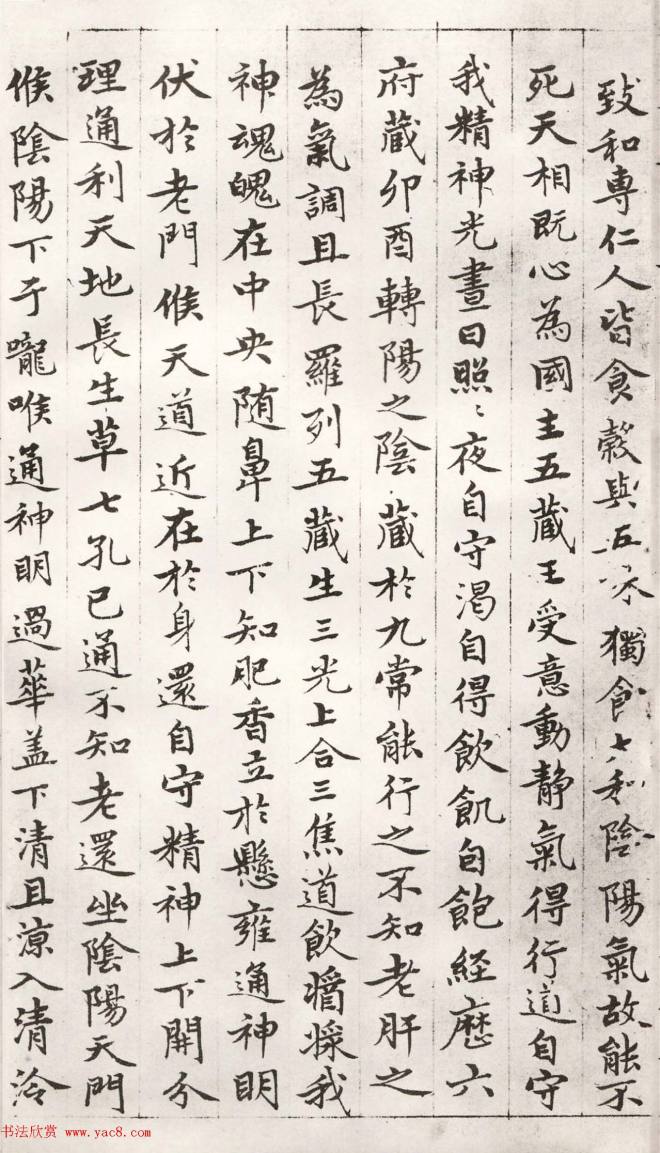 致和専仁人皆食穀與五味獨食大和陰陽氣故能不
死天相既心為國主五藏王受意動静氣得行道自守
我精神光晝日照〻夜自守渴自得飲飢自飽経歷六
府藏卯酉轉陽之陰藏於九常能行之不知老肝之
為氣調且長羅列五藏生三光上合三焦道飲醬漿我
神魂魄在中央随鼻上下知肥香立於懸雍通神明
伏於老門候天道近在於身還自守精神上下開分
理通利天地長生草七孔已通不知老還坐陰陽天門
候陰陽下于嚨喉通神明過華盖下清且涼入清泠
书法欣赏 www.yac8.com